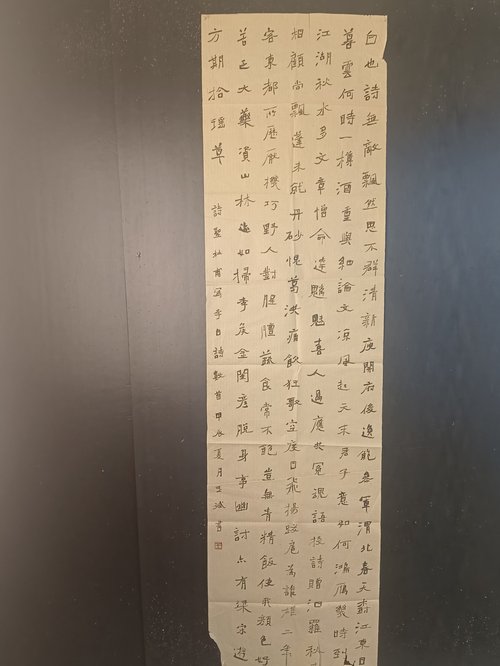 白也詩無敵飄然思不群清新庾開府俊逸鮑參軍渭北春天樹江東日
暮雲何時一樽酒重與細論文涼風起天末君子意如何鴻雁幾時到
江湖秋水多文章憎命達魑魅喜人過應共冤魂語投詩贈汨羅秋
相顧尚飄蓬未就丹砂愧葛洪痛飲狂歌空度日飛揚跋扈為誰雄二年
客東都所歷厭機巧野人對腥膻蔬食常不飽豈無青精飯使我顏色好
苦乏大藥資山林跡如掃李侯金閨彥脫身事幽討亦有梁宋遊
方期拾瑤草
詩聖杜甫寫李白詩數首甲辰夏月王斌書